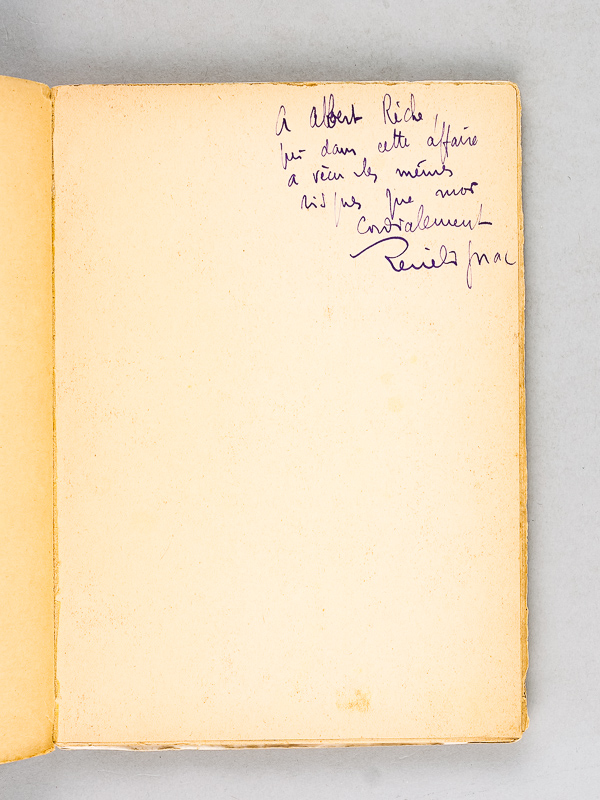 A Albert Riche,
qui dans cette affaire
a vécu les mêmes
risques que moi
Cordialement